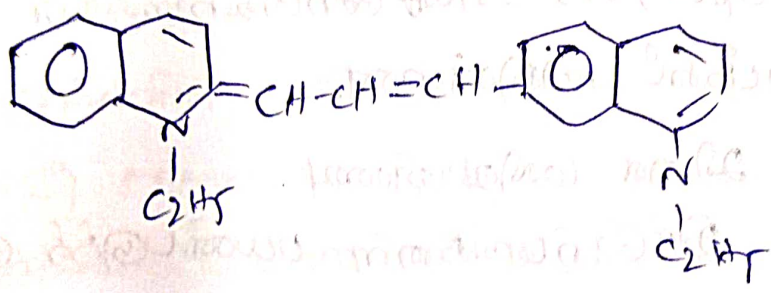 =CH-CH=CH-
N
N
C2H5
C2H5